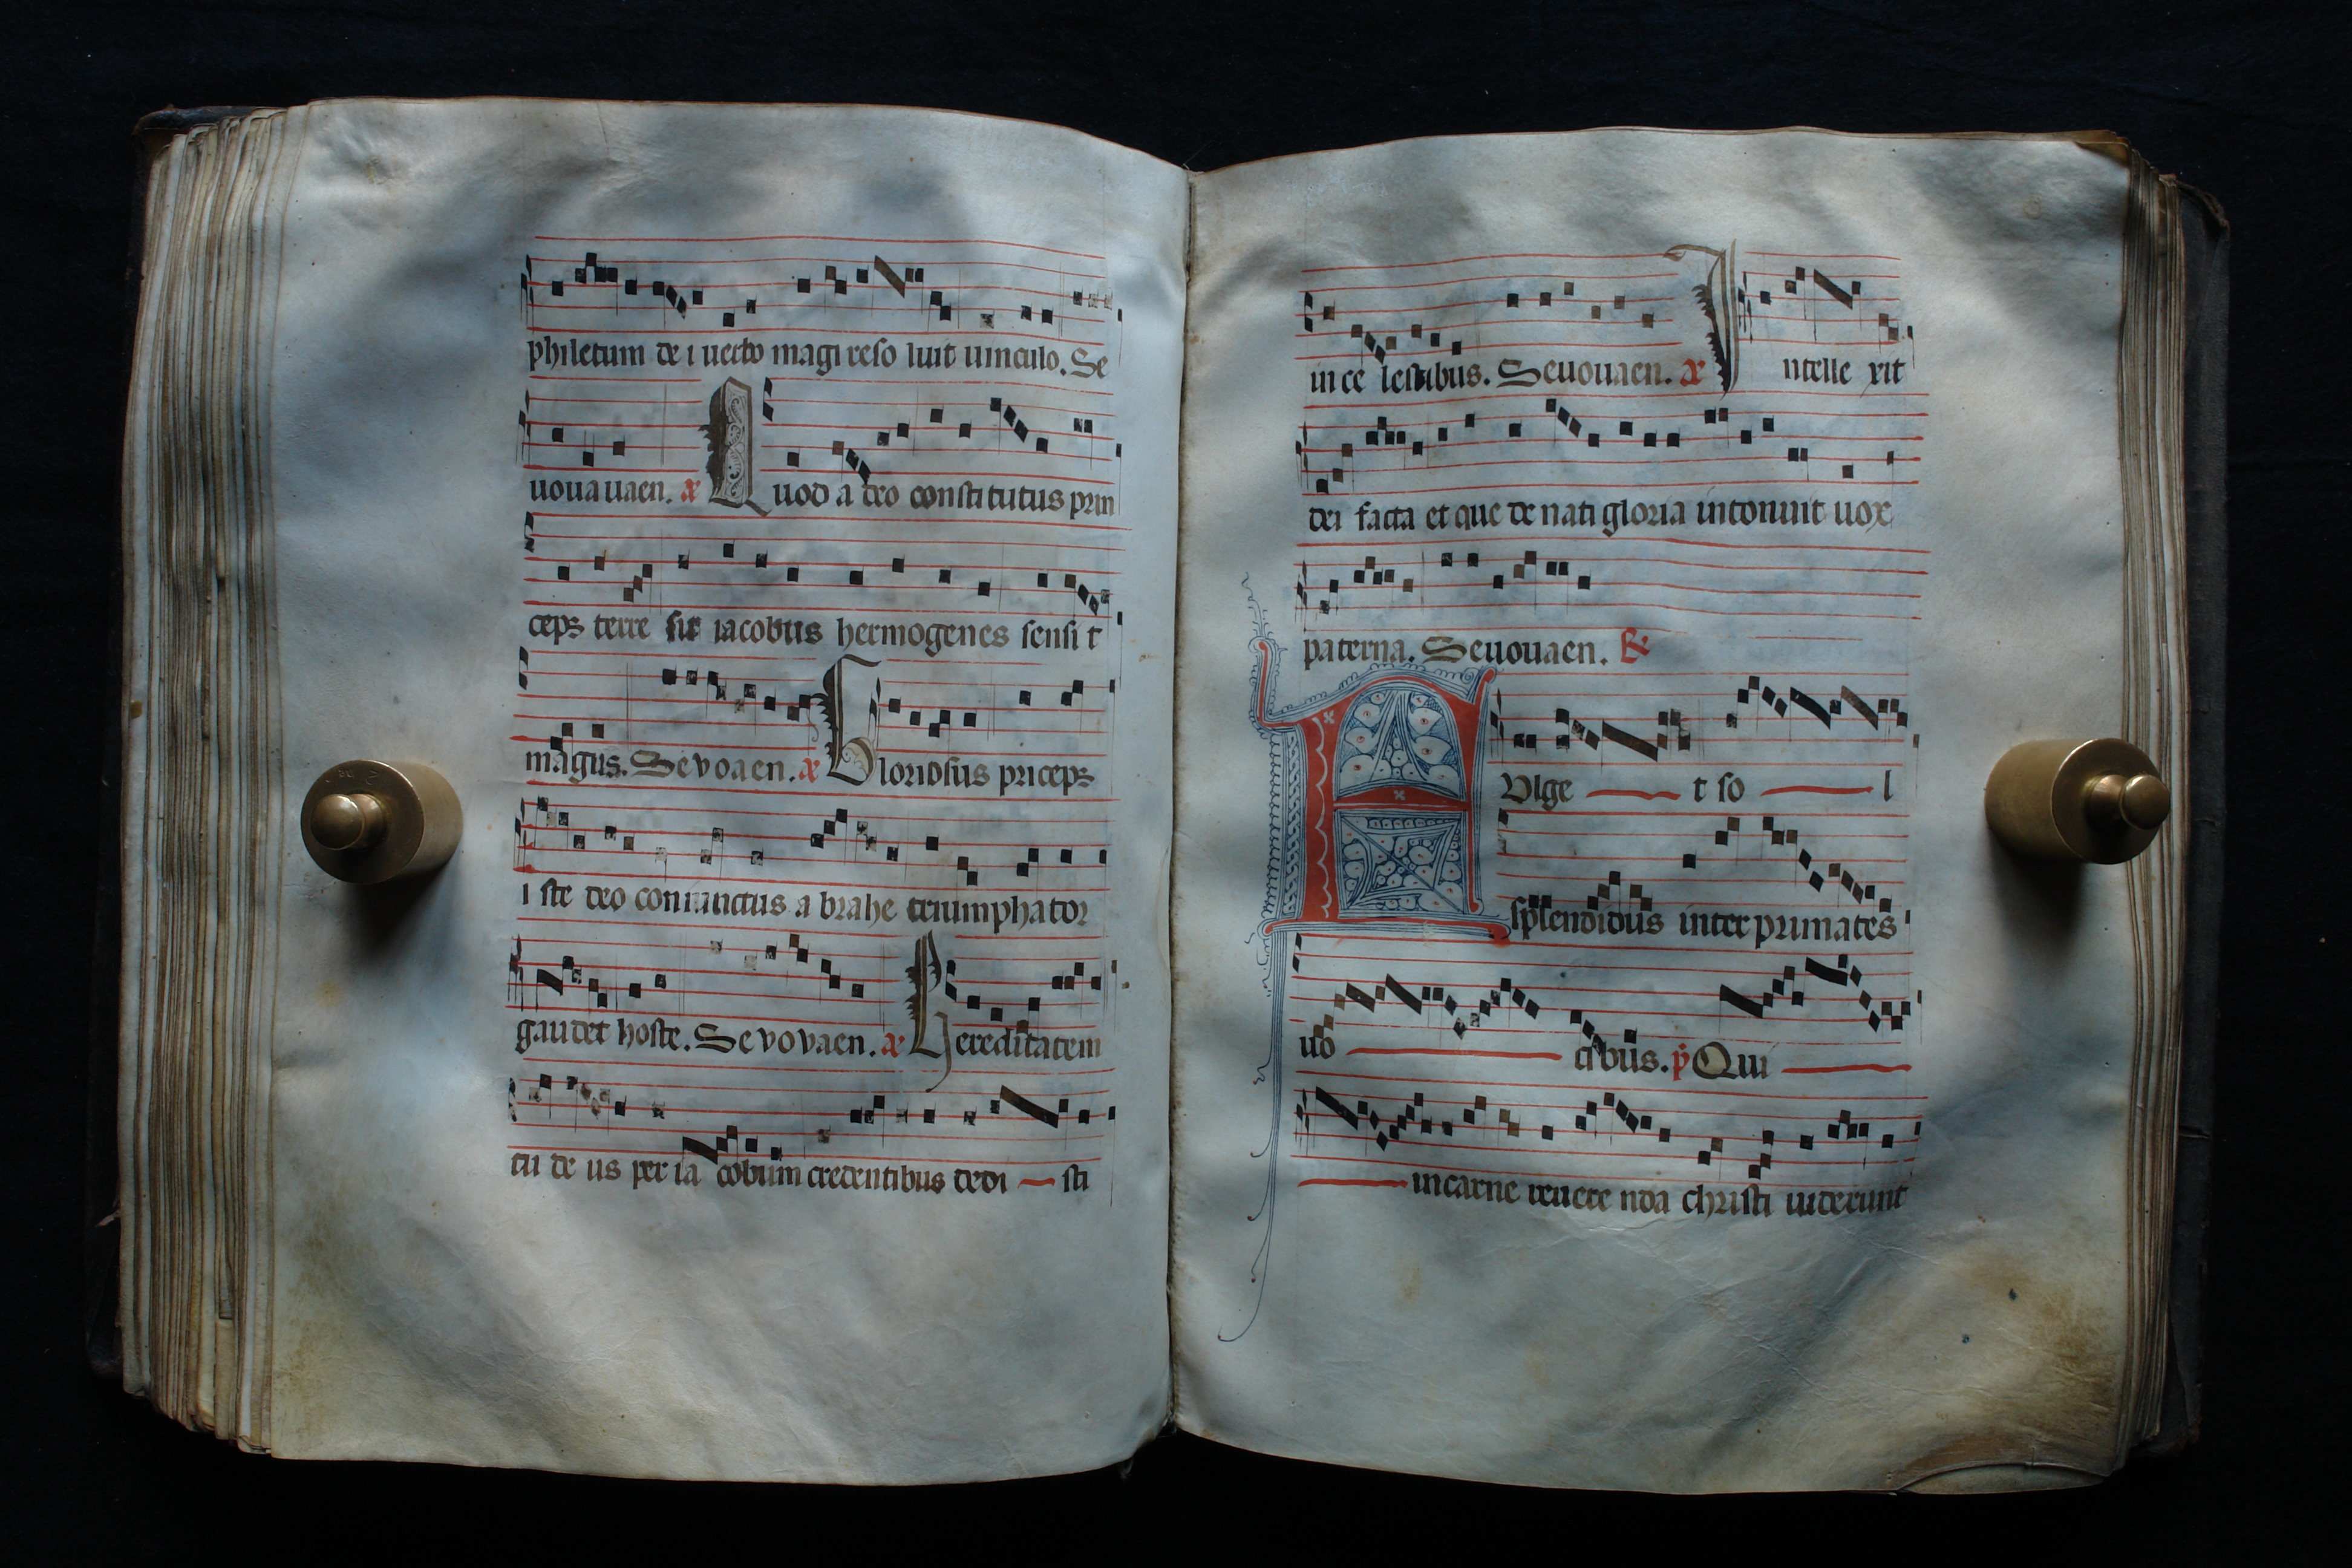 philetum de i uecto magi reso luit uinculo. Se
uoua uaen. æ Quod a deo consti tutus prin
ceps terre sit iacobus hermogenes sensi t
magus. Sevoaen. æ Gloriosus priceps
i ste deo coniunctus a brahe triumphator
gaudet hoste. Sevovaen. æ Hereditatem
tu de us per ia cobum credentibus dedi sti
in ce lestibus. Seuouaen. æ Intelle xit
dei facta et que de nati gloria intonuit uox
paterna. Seuouaen. R
FVlge t so l
splendidus inter primates
suo cibus. V Qui
in carne reuere nda christi uiderunt